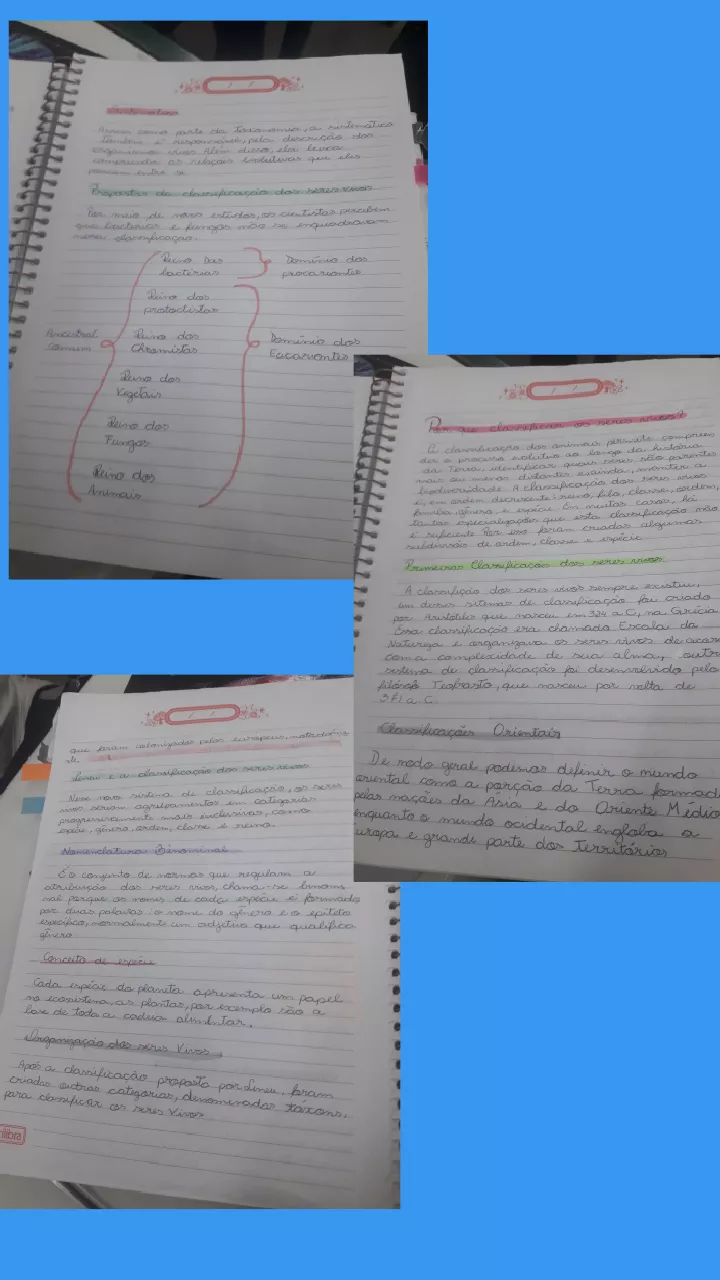 Sistemática
Assim como parte da Taxonomia, a sistemática
também é responsável, pela descrição dos
organismos vivos. Além disso, ela busca
compreender as relações evolutivas que eles
possuem entre si
Propostas de classificação dos seres vivos
Por meio de novos estudos, os cientistas percebem
que bactérias e fungos não se enquadravam
nessa classificação.
Reino das
bactérias
Domínio dos
procariontes
Reino dos
protoctistas
Ancestral
comum
Reino dos
Chromistas
Domínio dos
Eucariontes
Reino dos
Vegetais
Reino dos
Fungos
Reino dos
Animais
Por que classificar os seres vivos?
A classificação dos animais permite compreen
der o processo evolutivo ao longo da história
da Terra, identificar quais seres são parentes
mais ou menos distantes e ainda, manter a
biodiversidade. A classificação dos seres vivos
é, em ordem decrescente: reino, filo, classe, ordem,
família, gênero, e espécie. Em muitos casos, há
tantas especializações que esta classificação não
é suficiente. Por isso foram criadas algumas
subdivisão de ordem, classe e espécie.
Primeiras Classificações dos seres vivos
A classifição dos seres vivos sempre existiu,
um desses sistemas de classificação foi criado
por Aristóteles que nasceu em 384 a.C, na Grécia.
Essa classificação era chamada Escala da
Natureza e organizava os seres vivos de acor
com a complexidade de sua alma, outro
sistema de classificação foi desenvolvido pelo
filósofo Teofrasto, que nasceu por volta de
371 a.C.
Classificações Orientais
De modo geral podemos definir o mundo
oriental como a porção da Terra formad
pelas nações da Ásia e do Oriente Médio
enquanto o mundo ocidental engloba a
uropa e grande parte dos Territórios
que foram colonizados pelos europeus,
Lineu e a classificação dos seres vivos
Nesse novo sistema de classificação, os seres
vivos seriam agrupamentos em categorias
progressivamente mais inclusivas, como
espécie, gênero, ordem, classe e reino.
Nomenclatura Binominal
É o conjunto de normas que regulam a
atribuição dos seres vivos, chama-se binomi
nal porque os nomes de cada espécie é formado
por duas palavras: o nome do gênero e o epíteto
específico, normalmente um adjetivo que qualifica
gênero
Conceito de espécie
Cada espécie do planeta apresenta um papel
no ecossistema, as plantas, por exemplo são a
base de toda a cadeia alimentar.
Organização dos seres Vivos
Após a classificação proposta por Lineu, foram
criadas outras categorias, denomenadas táxons,
para classificar os seres vivos
tilibra